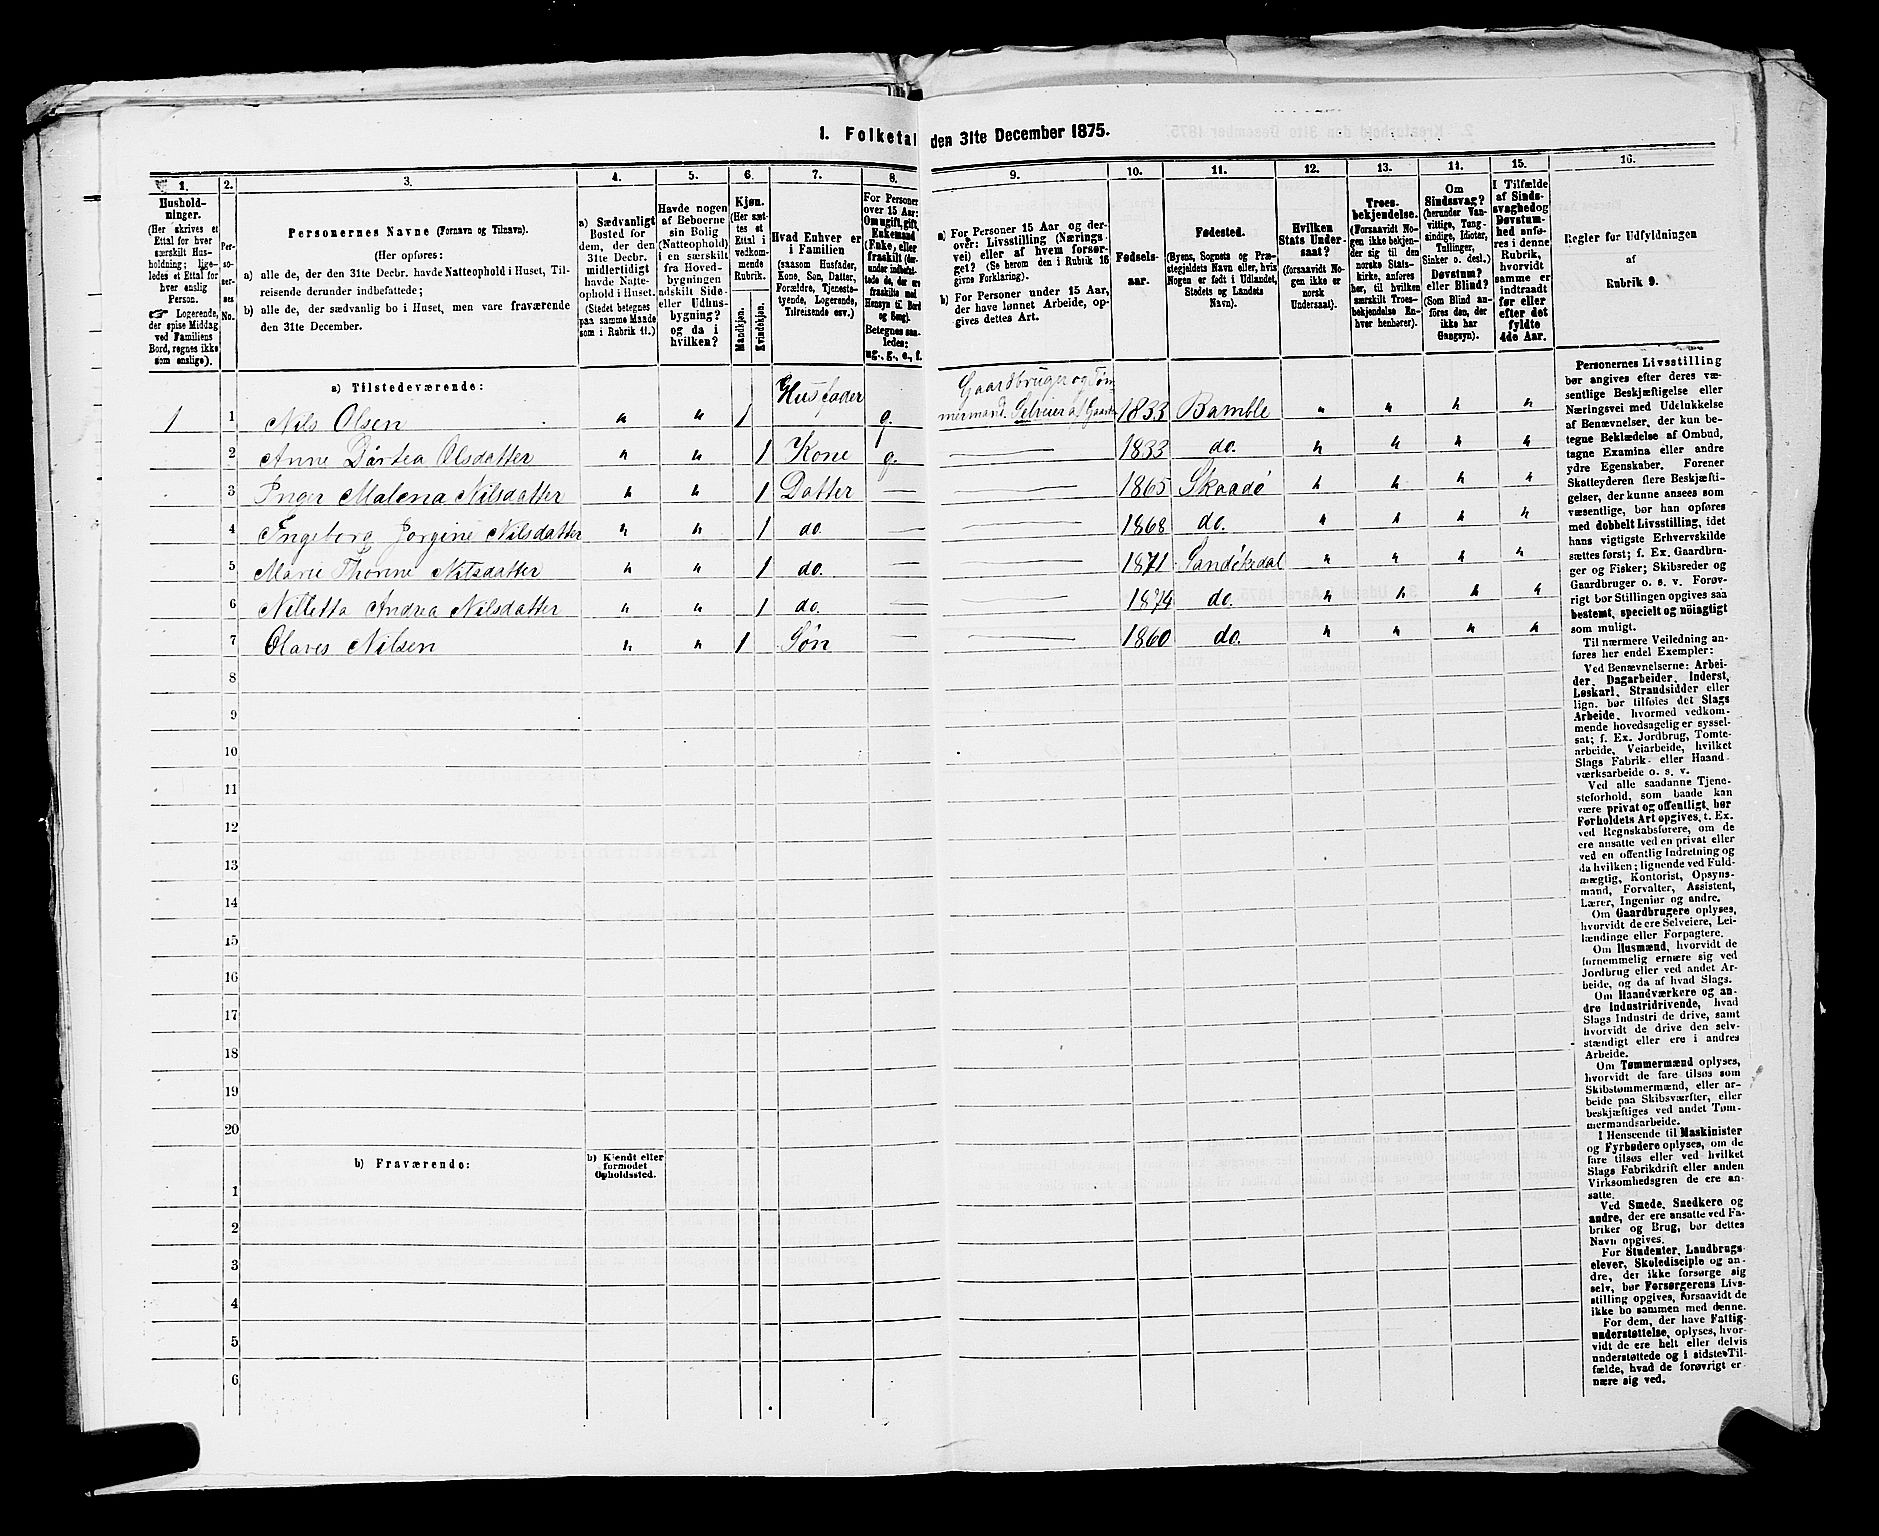 1. Folketal den 31te December 1875.
1. 2. 3. 4. 5. 6. 7. 8. 9. 10. 11. 12. 13. 14. 15. 16.
Husholdninger.
(Her skrives et
Ettal for hver
særskilt Husholdning;
ligeledes et Ettal for
hver enslig
Person.
☞ Logerende,
der spise Middag
ved Familiens
Bord, regnes ikke
som enslige).
Personernes No.
Personernes Navne (Fornavn og Tilnavn).
(Her opføres:
a) alle de, der den 31te Decbr. havde Natteophold i Huset, Tilreisende derunder indbefattede;
b) alle de, der sædvanlig bo i Huset, men vare fraværende
den 31te December.
a) Sædvanligt
Bosted for
dem, der den
31te Decbr.
midlertidigt
havde Natteophold i Huset.
(Stedet betegnes
paa samme Maade
som i Rubrik 11.)
Havde nogen
af Beboerne
sin Bolig
(Natteophold)
i en særskilt
fra Hovedbygningen
adskilt Side-
eller Udhusbygning?
og da i
hvilken?
Kjøn.
(Her sættes et
Ettal i
vedkommende
Rubrik.
Mandkjøn.
Kvindekjøn.
Hvad Enhver er
i Familien
(saasom Husfader,
Kone, Søn, Datter,
Forældre, Tjenestetyende, Logerende,
Tilreisende osv.)
For Personer
over 15 Aar:
Om ugift, gift,
Enkemand
(Enke, eller
fraskilt
Betegnes saaledes:
ug., g., e., f.
a) For Personer 15 Aar og derover: Livsstilling (Næringsvei) eller af hvem forsørget? (Se herom den i Rubrik 16
givne Forklaring).
b) For Personer under 15 Aar,
der have lønnet Arbeide, opgives dettes Art.
Fødselsaar.
Fødested.
(Byens, Sognets og Præstegjeldets Navn eller, hvis
Nogen er født i Udlandet,
Stedets og Landets
Navn).
Hvilken
Stats Undersaat?
(forsaavidt Nogen ikke er
norsk
Undersaat).
Troesbekjendelse.
(Forsaavidt Nogen ikke bekjender sig til den
norske Statskirke, anføres
her, til hvilken
særskilt Troesbekjendelse Enhver henhører).
Om
Sindssvag?
(herunder Vanvittige, Tungsindige, Idioter,
Tullinger,
Sinker o. desl.).
Døvstum?
eller Blind?
(Som Blind anføres den, der
ikke har
Gangsyn).
I Tilfælde
af Sindssvaghed og
Døvstumhed anføres i denne
Rubrik,
hvorvidt
samme er
indtraadt
før eller
efter det
fyldte
4de Aar.
Regler for Udfyldningen
af
Rubrik 9.
a) Tilstedeværende:
1 1 Nils Olsen " " 1 Husfader g. Gaardbruger og Tømmermand. Selveier af Gaarden 1833 Bamble " " " "
2 Anne Dørtea Olsdatter " " 1 Kone g. — 1833 do. " " " "
3 Inger Malena Nilsdatter " " 1 Datter — — 1865 Skaadø " " " "
4 Ingeborg Jorgine Nilsdatter " " 1 do. — — 1868 do. " " " "
5 Marie Thorine Nilsdatter " " 1 do. — — 1871 Sandøkedal " " " "
6 Nilletta Andrea Nilsdatter " " 1 do. — — 1874 do. " " " "
7 Olaves Nilsen " " 1 Søn — — 1860 do. " " " "
8
9
10
11
12
13
14
15
16
17
18
19
20
b) Fraværende:
b) Kjendt eller
formodet
Opholdssted.
1
2
3
4
5
6
Personernes Livsstilling
bør angives efter deres væsentlige Beskjæftigelse eller
Næringsvei med Udelukkelse
af Benævnelser, der kun betegne Beklædelse af Ombud,
tagne Examina eller andre
ydre Egenskaber. Forener
Skatteyderen flere Beskjæftigelser, der kunne ansees som
væsentlige, bør han opføres
med dobbelt Livsstilling, idet
hans vigtigste Erhvervskilde
sættes først; f. Ex. Gaardbruger og Fisker; Skibsreder og
Gaardbruger o. s. v. Forøvrigt bør Stillingen opgives saa
bestemt, specielt og nøiagtigt
som muligt.
Til nærmere Veiledning anføres her endel Exempler:
Ved Benævnelserne: Arbeider, Dagarbeider, Inderst,
Løskarl, Strandsidder eller
lign. bør tilføies det Slags
Arbeide, hvormed vedkommende hovedsagelig er sysselsat; f. Ex. Jordbrug, Tomtearbeide, Veiarbeide, hvilket
Slags Fabrik- eller Haandværksarbeide o. s. v.
Ved alle saadanne Tjenesteforhold, som baade kan
være privat og offentligt, bør
Forholdets Art opgives, t. Ex.
ved Regnskabsførere, om de
ere ansatte ved en privat eller
ved en offentlig Indretning og
da hvilken; lignende ved Fuldmægtig, Kontorist, Opsynsmand, Forvalter, Assistent,
Lærer, Ingeniør og andre.
Om Gaardbrugere oplyses,
hvorvidt de ere Selveiere, Leilændinge eller Forpagtere.
Om Husmænd, hvorvidt de
fornemmelig ernære sig ved
Jordbrug eller ved andet Arbeide, og da af hvad Slags.
Om Haandværkere og andre Industridrivende, hvad
Slags Industri de drive, samt
hvorvidt de drive den selvstændigt eller ere i andres
Arbeide.
Om Tømmermænd oplyses,
hvorvidt de fare tilsøs som
Skibstømmermænd, eller arbeide paa Skibsværfter, eller
beskjæftiges ved andet Tømmermandsarbeide.
I Henseende til Maskinister
og Fyrbødere oplyses, om de
fare tilsøs eller ved hvilket
Slags Fabrikdrift eller anden
Virksomhedsgren de ere ansatte.
Ved Smede, Snedkere og
andre, der ere ansatte ved Fabriker og Brug, bør dettes
Navn opgives.
For Studenter, Landbrugselever, Skoledisciple og andre, der ikke forsørge sig
selv, bør Forsørgerens Livsstilling opgives, forsaavidt de
ikke bo sammen med denne.
For dem, der have Fattigunderstøttelse, oplyses, hvorvidt de ere helt eller delvis
understøttede og i sidste Tilfælde, hvad de forøvrigt ernære sig ved.